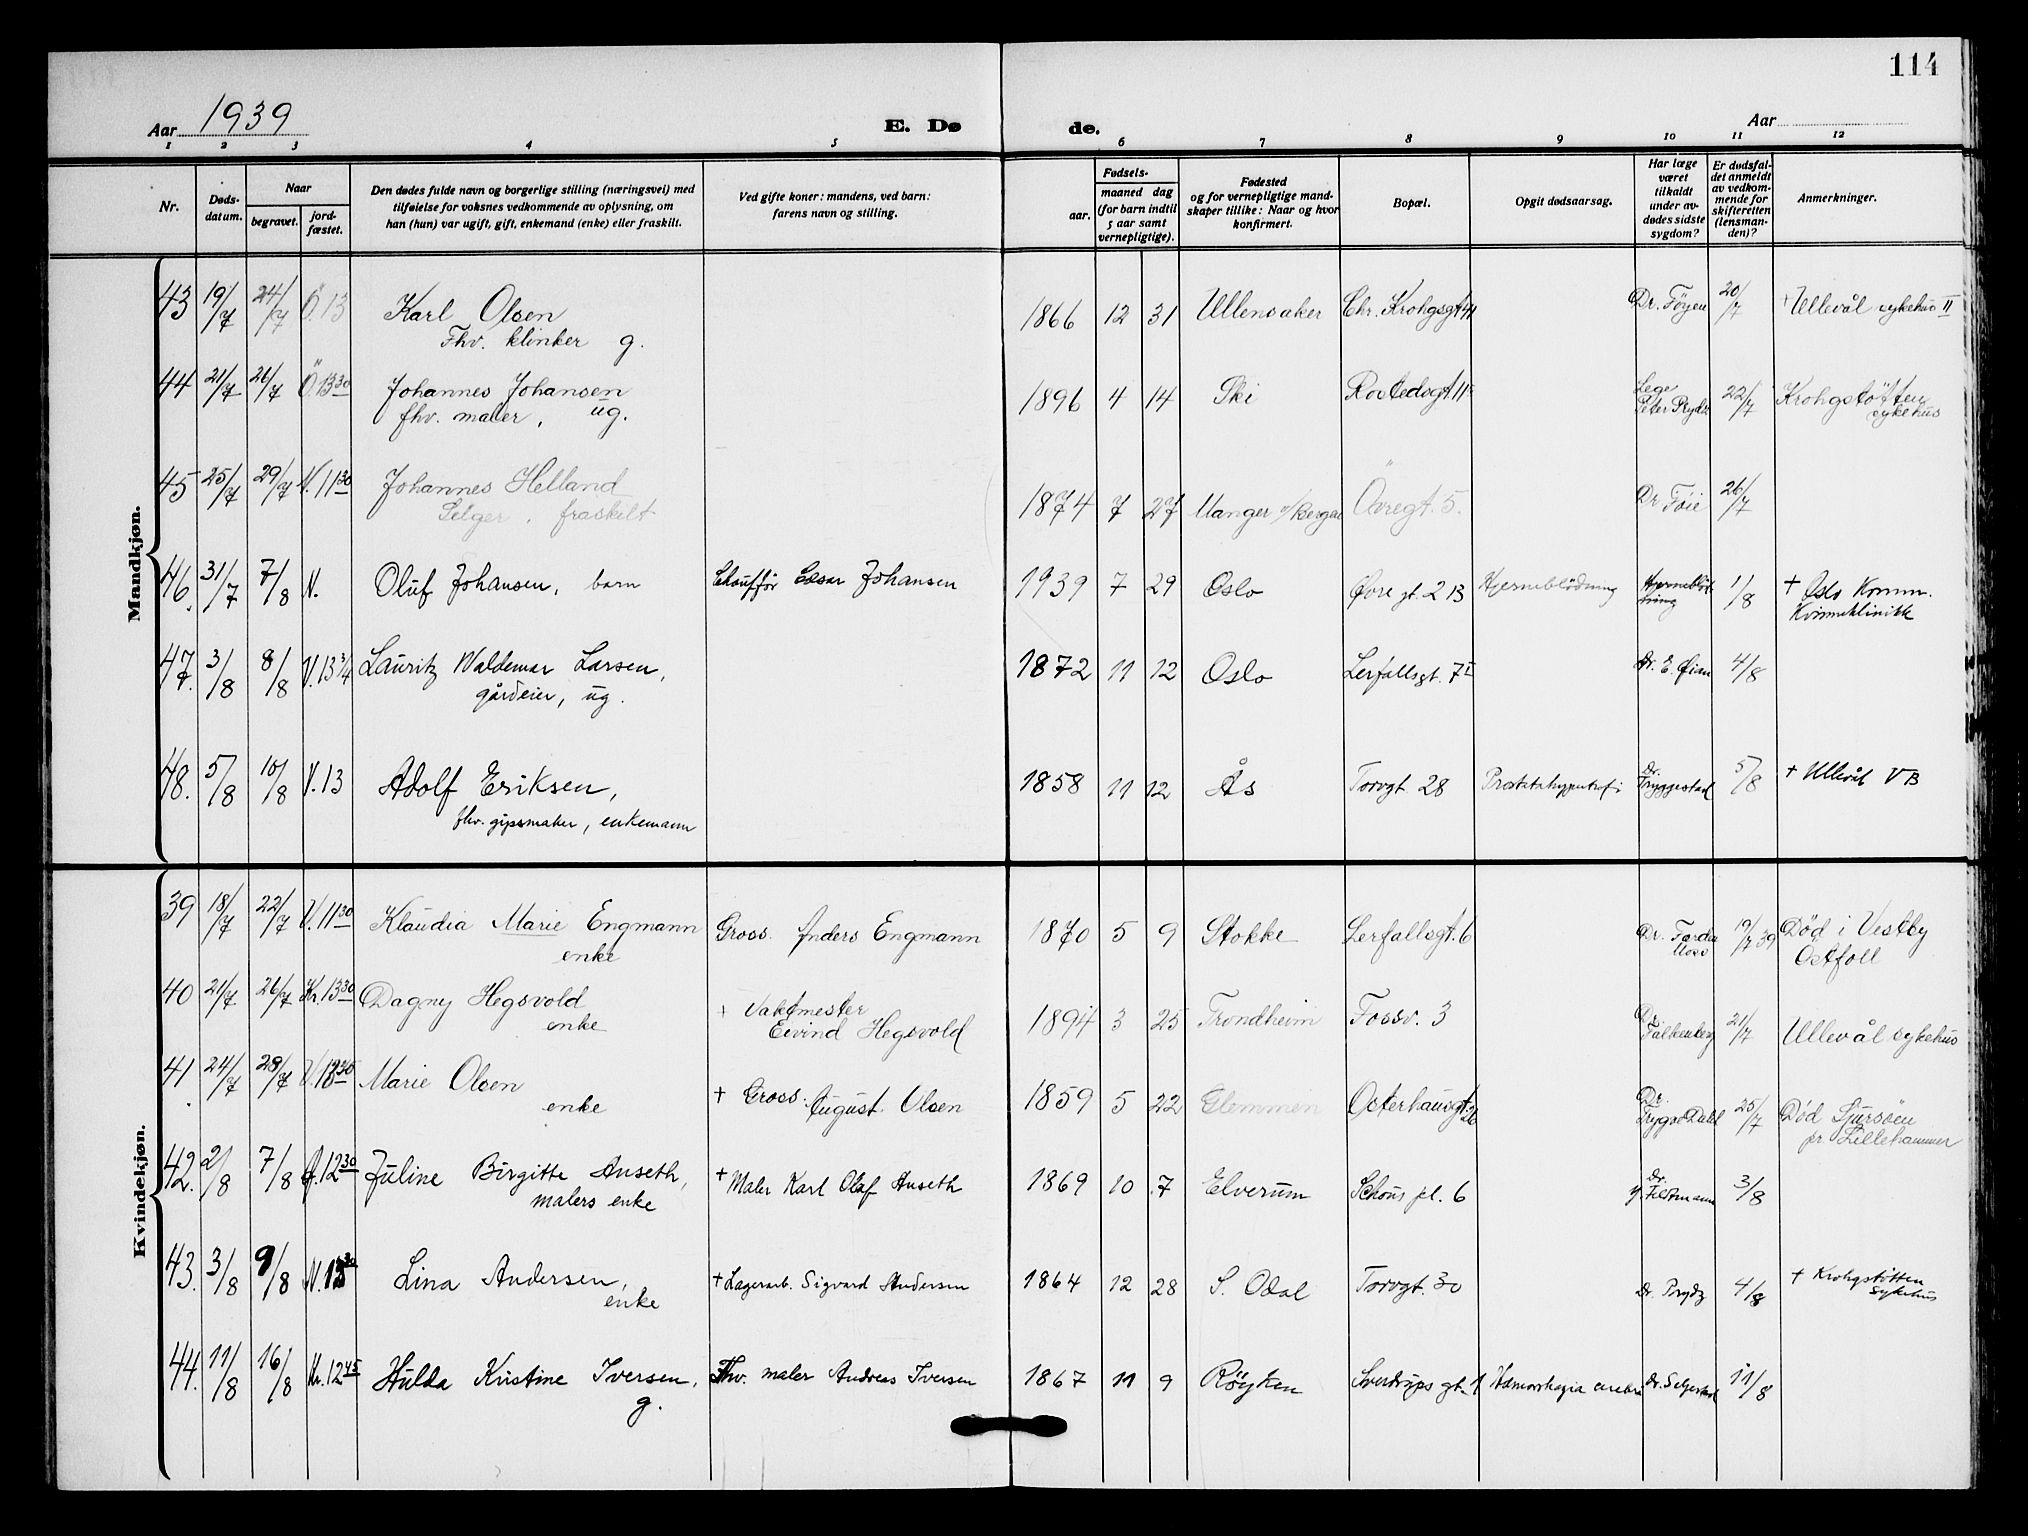 114
Aar 1939 E. Dø de. Aar
1 2 3 4 5 6 7 8 9 10 11 12
Nr.
Døds-
datum.
Naar
begravet.
jord-
fæstet.
Den dødes fulde navn og borgerlige stilling (næringsvei) med
tilføielse for voksnes vedkommende av oplysning, om
han (hun) var ugift, gift, enkemand (enke) eller fraskilt.
Ved gifte koner: mandens, ved barn:
farens navn og stilling.
Fødsels-
aar.
maaned dag
(for barn indtil
5 aar samt
vernepligtige).
Fødested
og for vernepligtige mand-
skaper tillike: Naar og hvor
konfirmert.
Bopæl.
Opgit dødsaarsag.
Har læge
været
tilkaldt
under av-
dødes sidste
sygdom?
Er dødsfal-
det anmeldt
av vedkom-
mende for
skifteretten
(lensman-
den)?
Anmerkninger.
Mandkjøn.
43 19/7 24/7 Ö. 13 Karl Olsen 1866 12 31 Ullensaker Chr. Krohgsgt 41 Dr. Föyen 20/7 + Ullevål sykehus II
Fhv. klinker g.
44 21/7 26/7 Ö 13 30 Johannes Johansen 1896 4 14 Ski Rostedsgt. 11 Lege Peter Prydz 22/7 Krohgstötten
fhv. maler, ug. sykehus
45 25/7 29/7 V. 11 30 Johannes Helland 1874 7 27 Manger v/Bergen Övregt. 5. Dr Föie 26/7
Selger, fraskilt
46. 31/7 7/8 N. Oluf Johansen, barn Chaufför Cæsar Johansen 1939 7 29 Oslo Øvre gt. 2 B Hjerneblödning 1/8 + Oslo Komm.
Kvinneklinikk
47. 3/8 8/8 V. 13 3/4 Lauritz Waldemar Larsen, 1872 11 12 Oslo Lerfallsgt. 7 I Dr. E. Øian 4/8
gårdeier, ug.
48. 5/8 10/8 V. 13 Adolf Eriksen, 1858 11 12 Ås Torvgt 28 Prostatahypertrofi Dr. Tryggestad 5/8 + Ullevål VB
fhv. gipsmaker, enkemann
Kvindekjøn.
39 18/7 22/7 V. 11 30 Klaudia Marie Engmann Gross. Anders Engmann 1870 5 9 Stokke Lerfallsgt. 6 Dr. Moss 19/7 39 Död i Vestby
enke Östfoll
40 21/7 26/7 Kr. 13 30 Dagny Hegsvold + Vaktmester 1894 3 25 Trondheim Fossv. 3 Dr. Falkenberg 21/7 Ullevål sykehus
enke Eivind Hegsvold
41. 24/7 28/7 Marie Olsen + Gross. August Olsen 1859 5 22 Glemmen Osterhausgt. 26 Dr. Trygve Dahl 25/7 Död Sjursöen
enke pr Lillehammer
42. 2/8 7/8 12 30 Juline Birgitte Anseth, + Maler Karl Olaf Anseth 1869 10 7 Elverum Schous pl. 6 Dr. Feldtmann 3/8
malers enke
43. 3/8 9/8 Lina Andersen, + Lagerarb. Sigvard Andersen 1864 12 28 S. Odal Torvgt. 30 Dr. Prydz 4/8 + Krohgstötten
enke sykehus
44. 11/8 16/8 Kr. 12 45 Hulda Kristine Iversen, Fhv. maler Andreas Iversen 1867 11 9 Röyken Sverdrups gt. 1 Hæmorrhagia cerebri Dr. Seljestad 11/8
g.